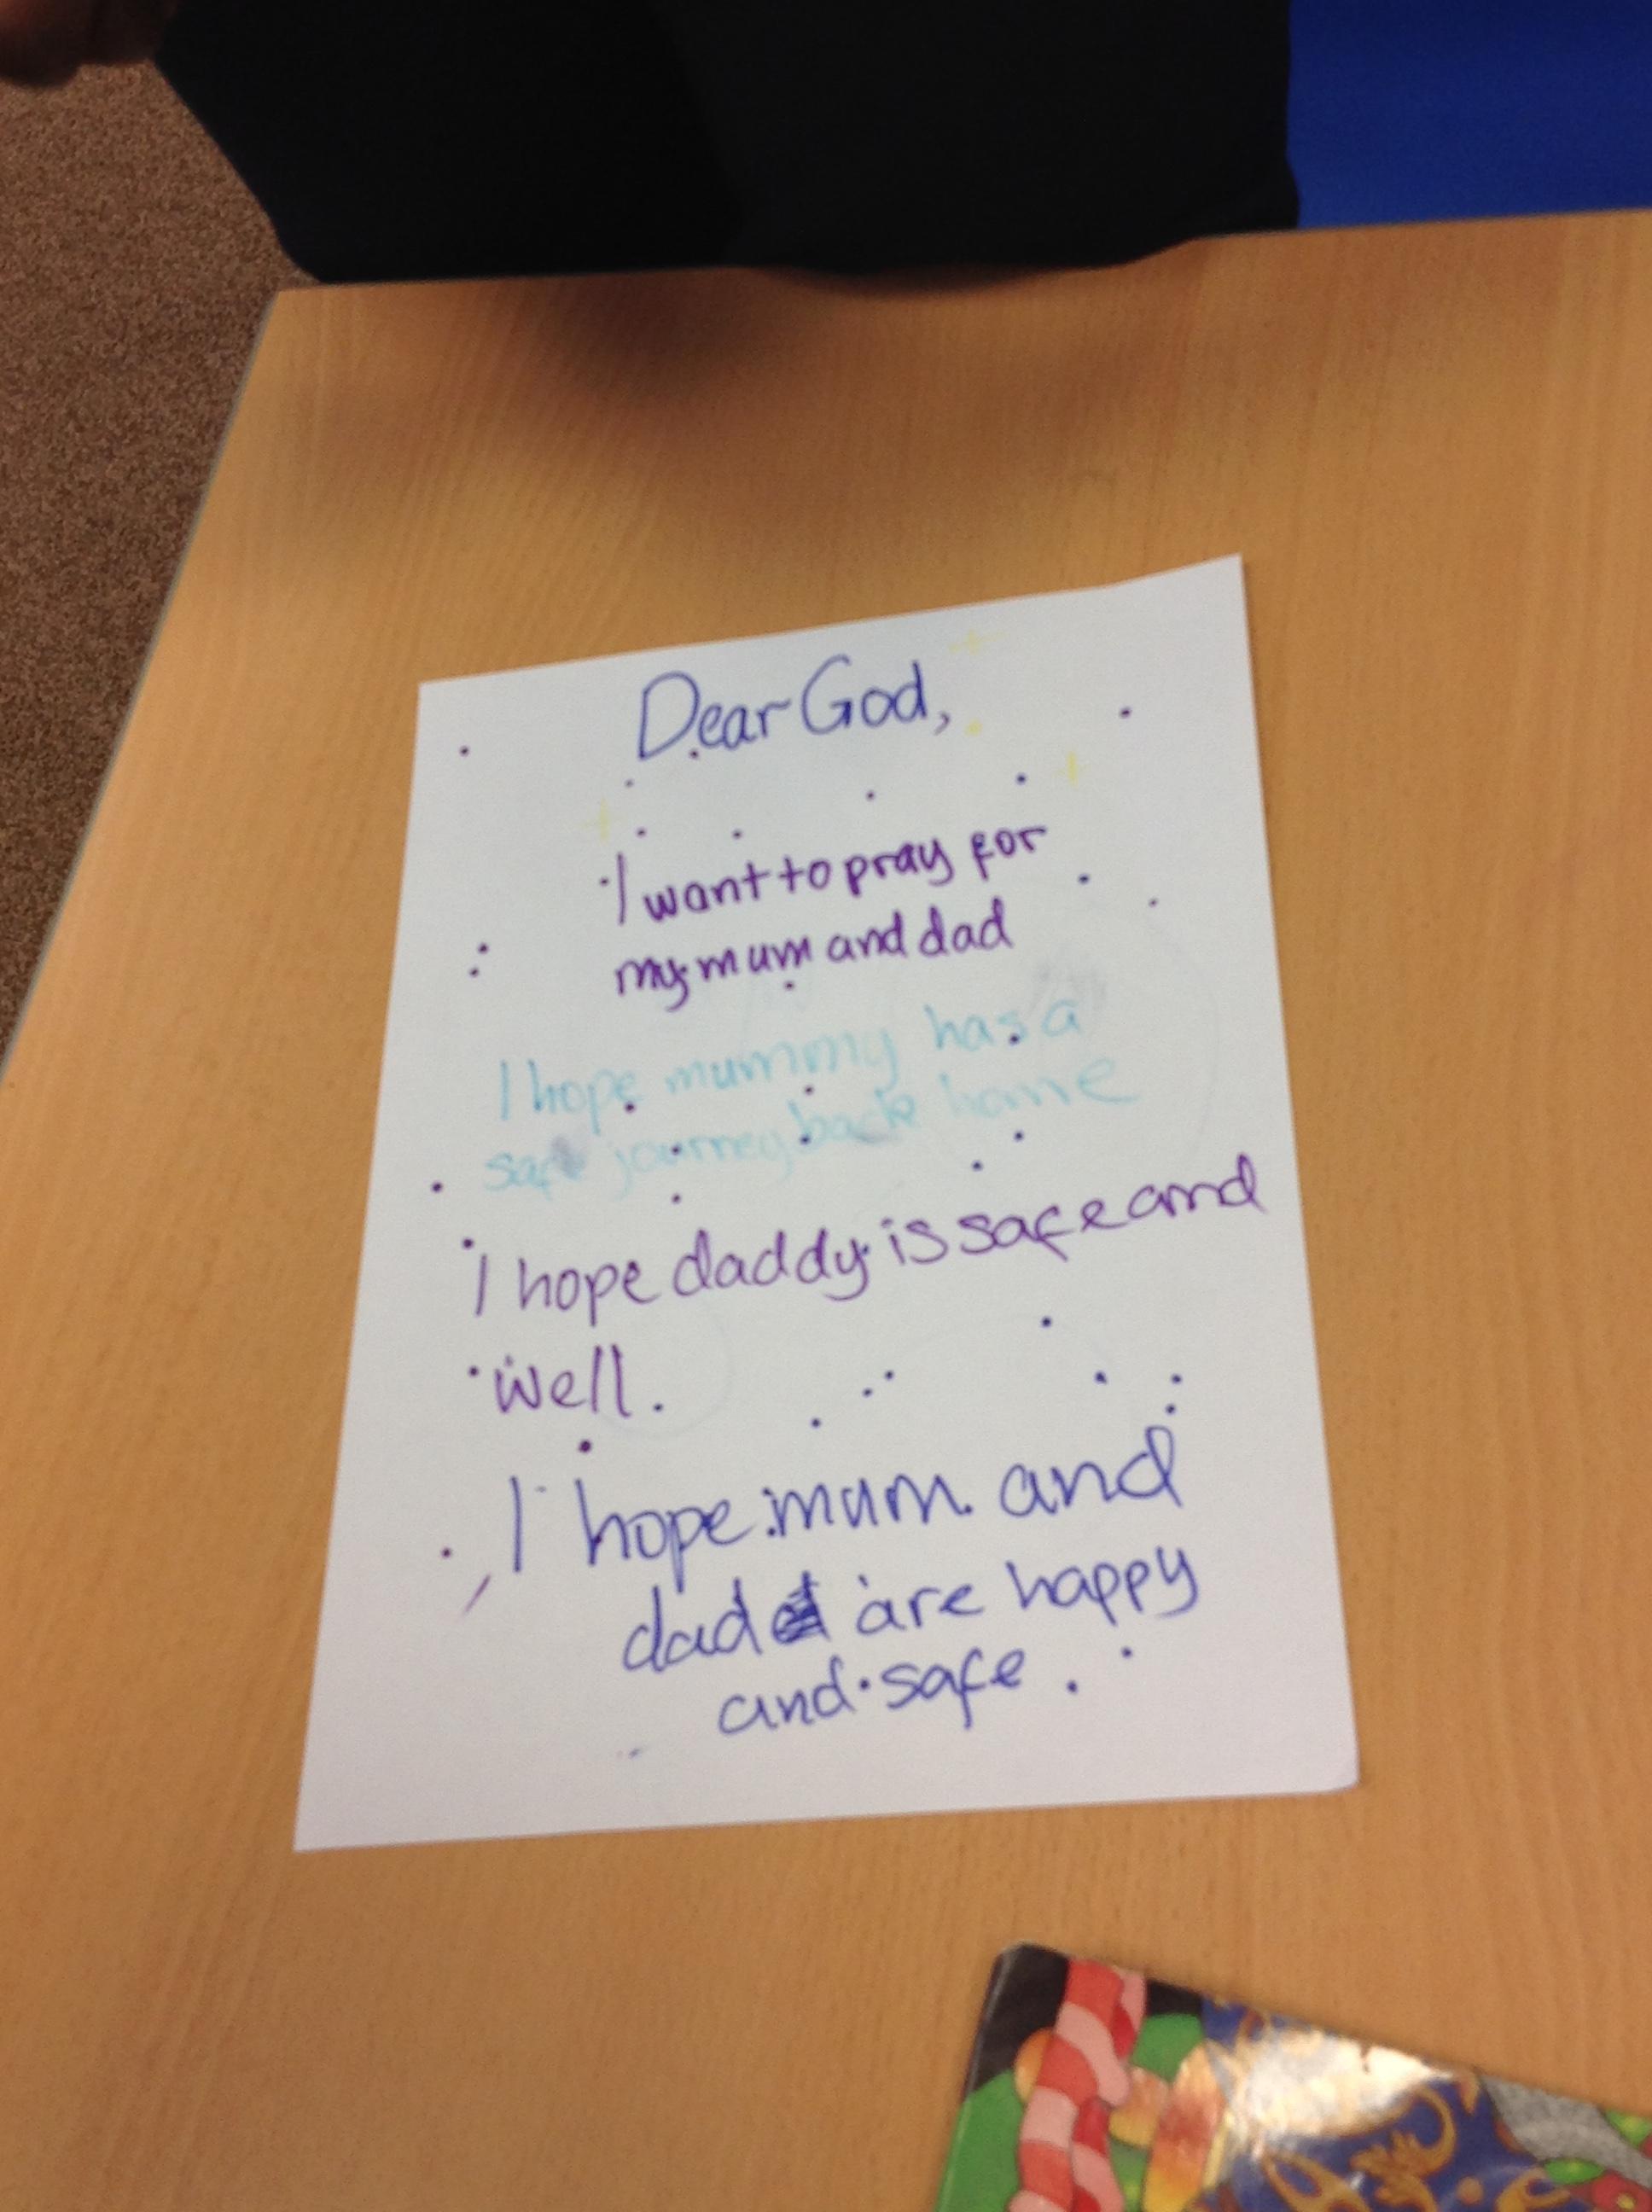 Dear God,
I want to pray for
my mum and dad
I hope mummy has a
safe journey back home
I hope daddy is safe and
well.
I hope mum and
dad are happy
and safe.